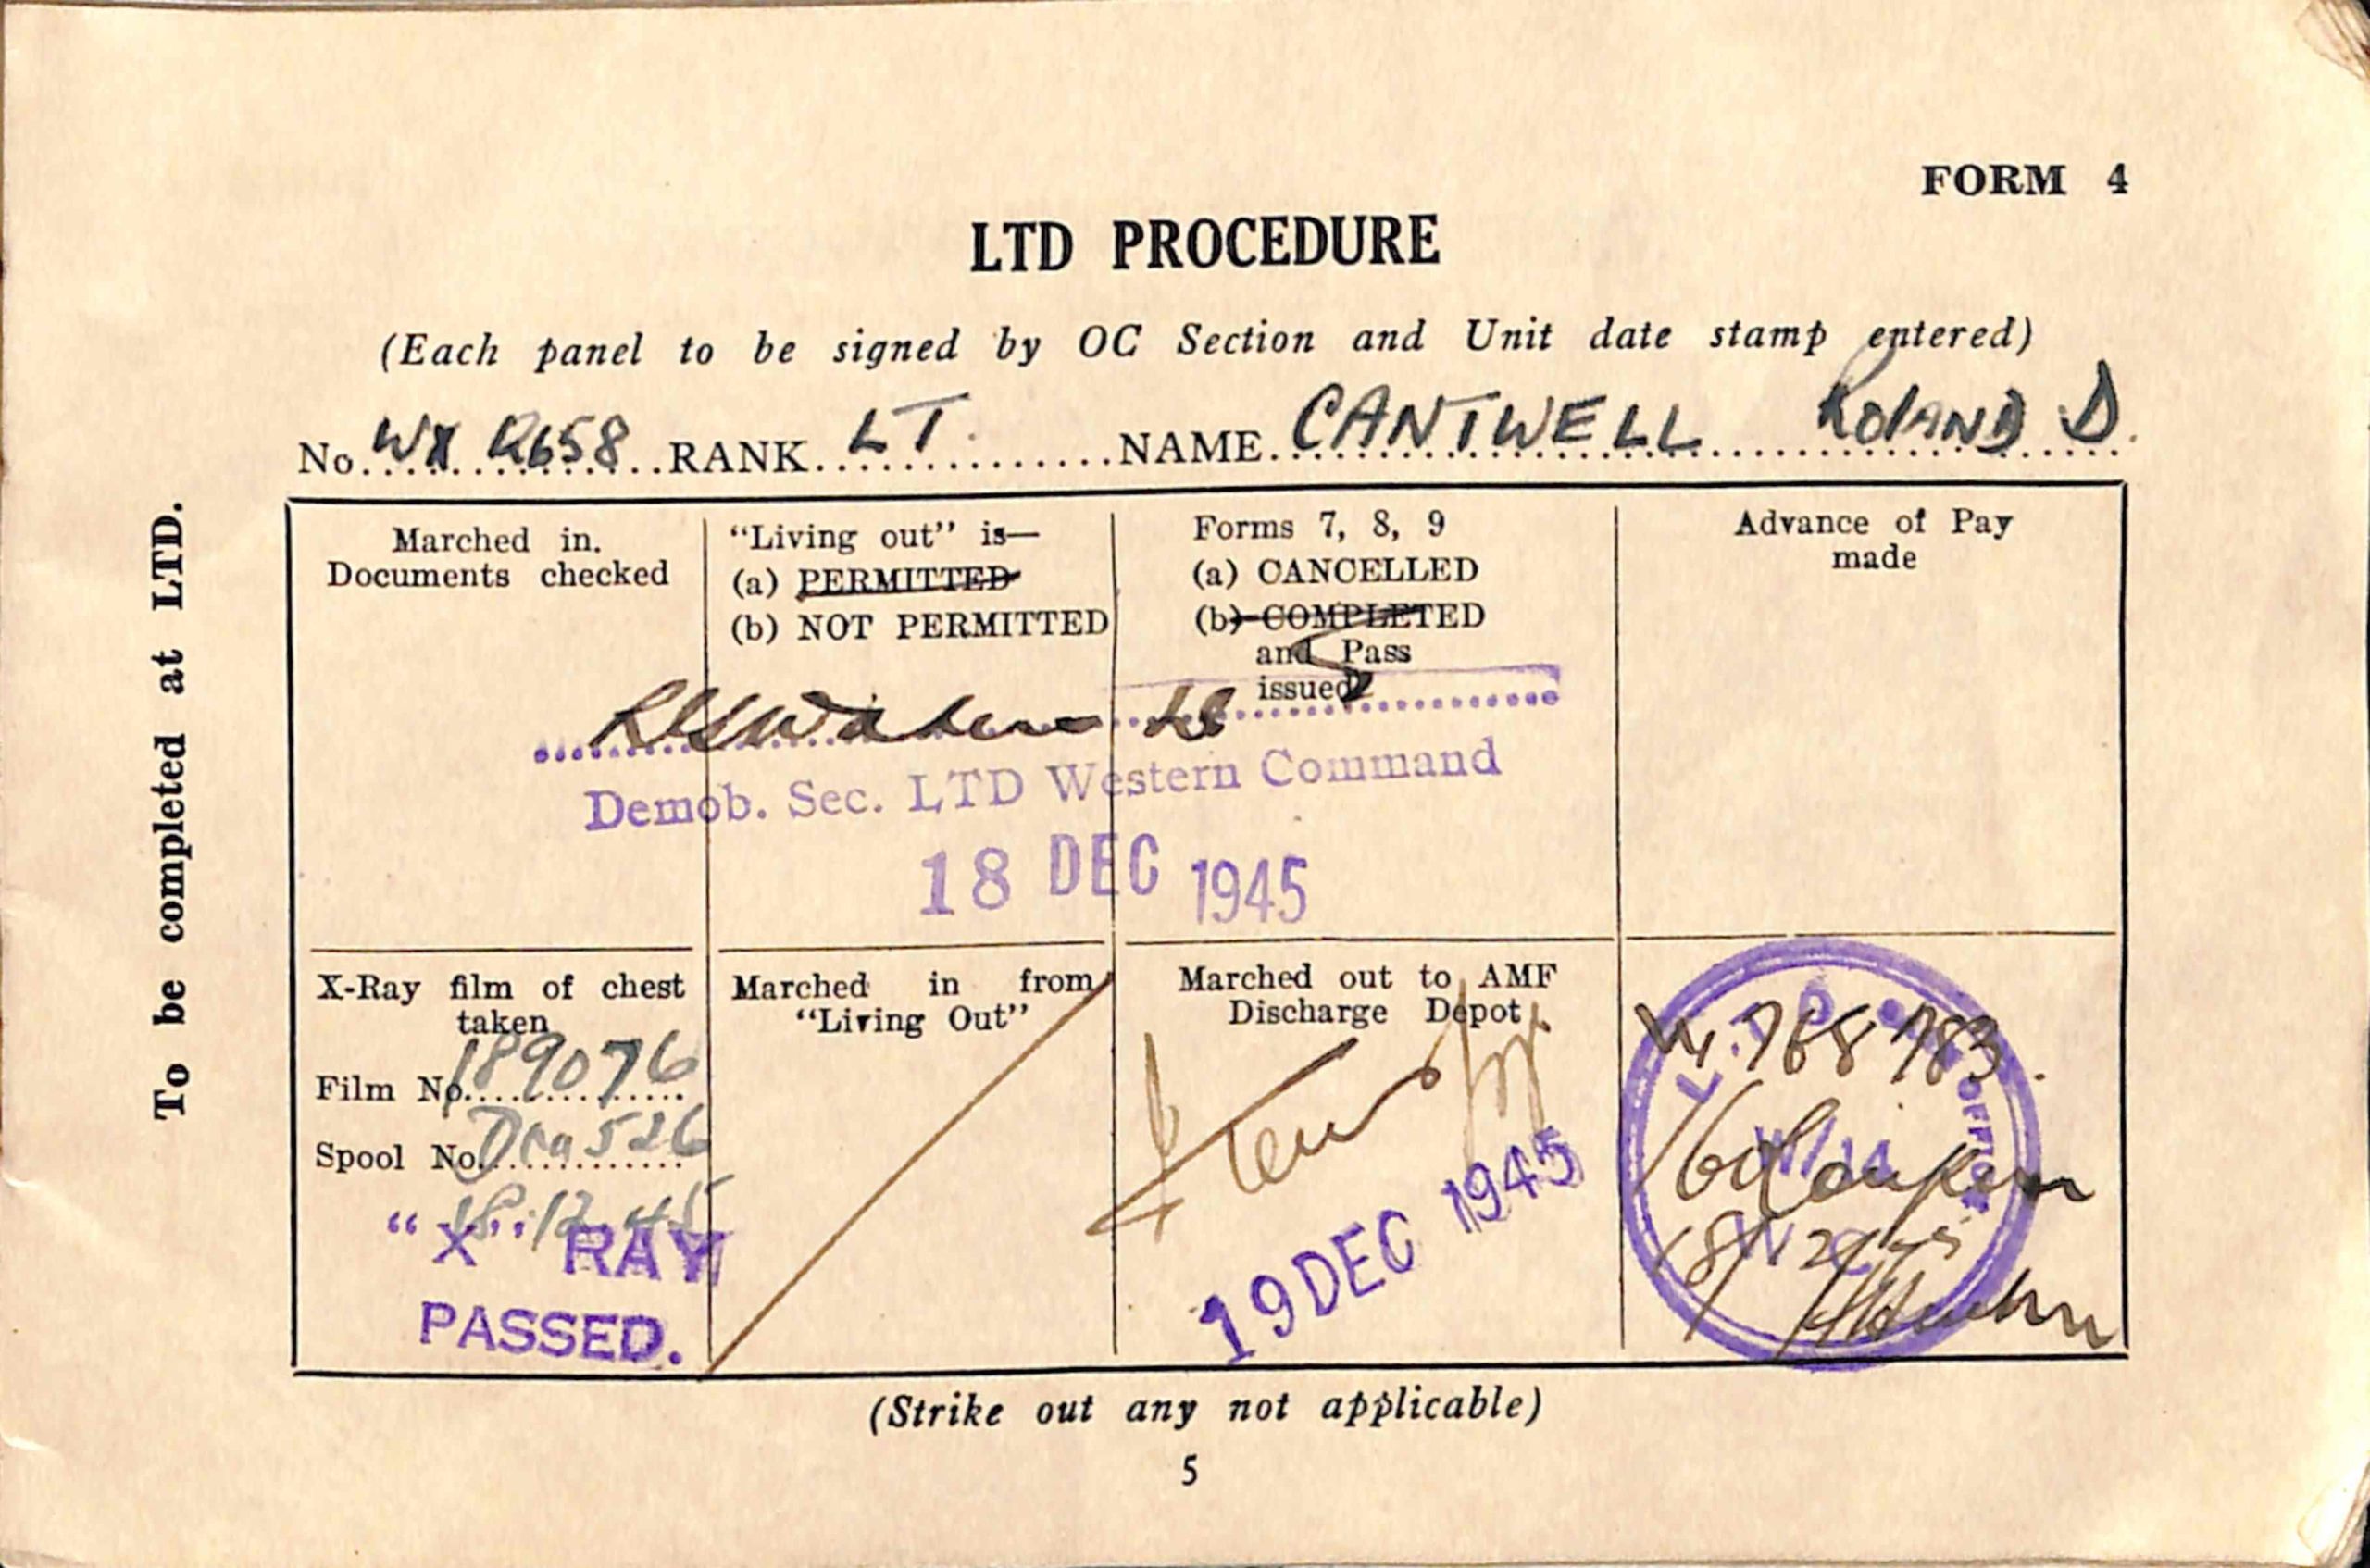 FORM 4
LTD PROCEDURE
(Each panel to be signed by OC Section and Unit date stamp entered)
No. WX RANK LT. NAME CANTWELL Roland D.
To be completed at LTD.
Marched in.
Documents checked
"Living out" is—
(a) PERMITTED
(b) NOT PERMITTED
Forms 7, 8, 9
(a) CANCELLED
(b) COMPLETED
and Pass
issued
Advance of Pay
made
Demob. Sec. LTD Western Command
18 DEC 1945
X-Ray film of chest
taken
Film No. 189076
Spool No. 526
18.12.45
"X" RAY
PASSED.
Marched in from
"Living Out"
Marched out to AMF
Discharge Depot
19 DEC 1945
18/12/45
(Strike out any not applicable)
5